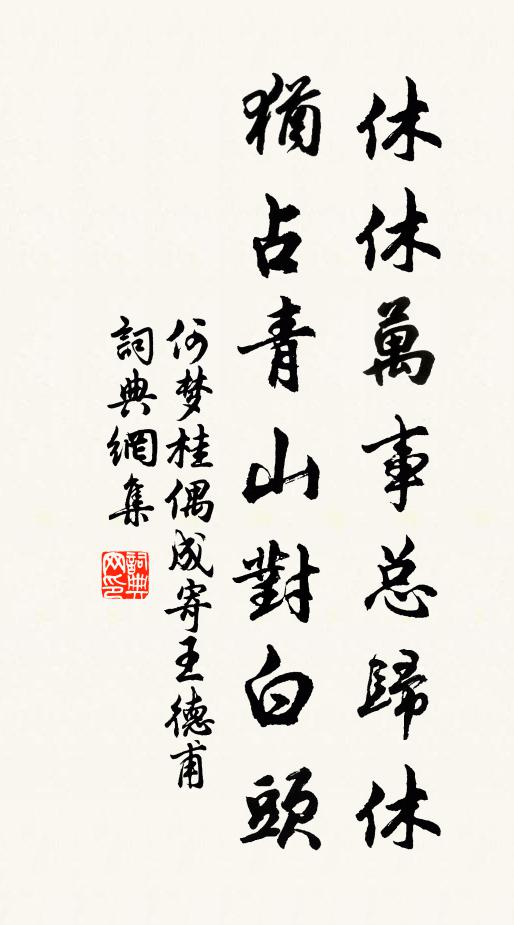 休休萬事总歸休
猶占青山對白頭
何梦桂偶成寄王德甫
詞典網集
詞典網印